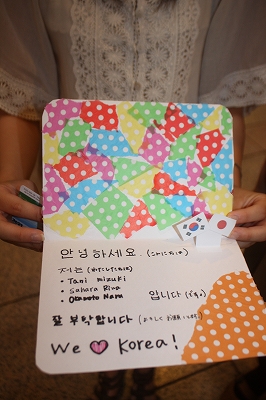 안녕하세요. (こんにちは)
저는 (わたしたちは)
• Tani mizuki
• Sahara Rina
• Okamoto Nami
입니다 (です。)
잘 부탁합니다 (よろしく お願いします。)
We ♡ Korea!